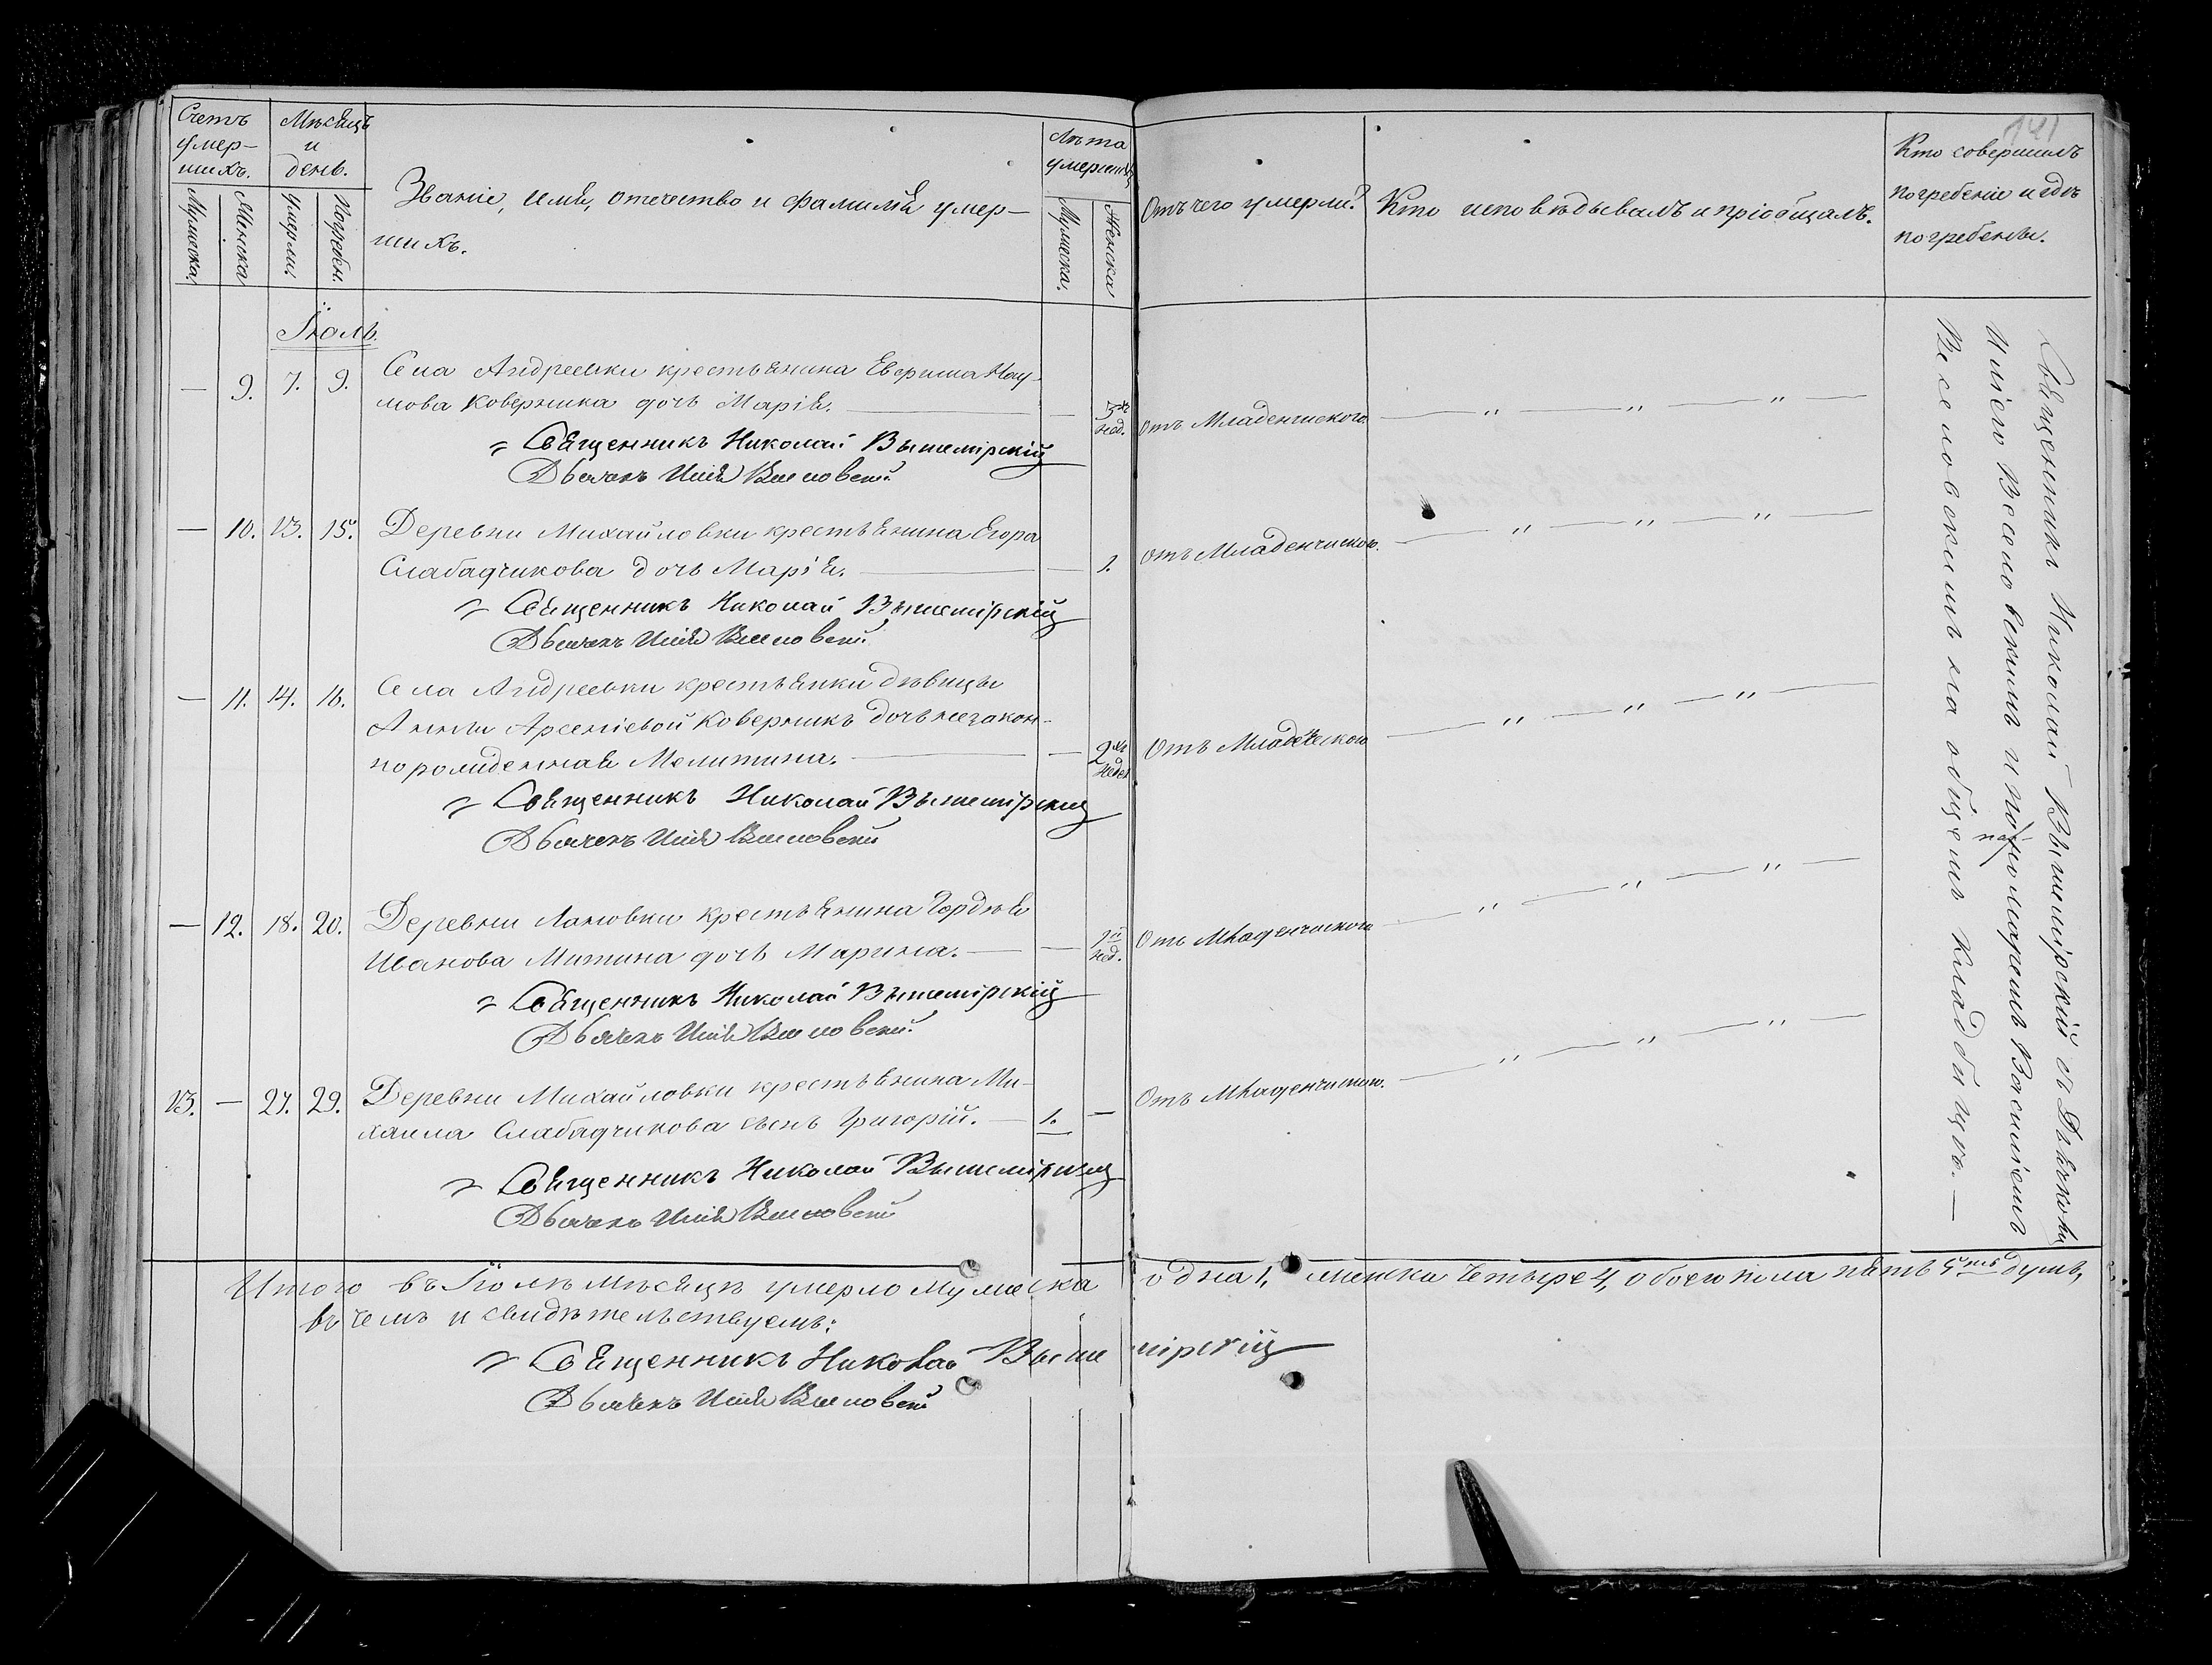 141
Счетъ
умер-
шихъ.
Мужеска.
Женска
Мѣсяцъ
и
день.
Умерли.
Погребен.
Званіе, имя, отечество и фамилія умер-
шихъ.
Лѣта
умершихъ
Мужеска.
Женска
Отъ чего умерли?
Кто исповѣдывалъ и пріобщалъ.
Кто совершилъ
погребеніе и гдѣ
погребены.
Іюль.
— 9. 7. 9. Села Андреевки крестьянина Евфима Нау-
мова Коверника дочь Марія. — — 3хъ нед. Отъ Младенческого. — „ — „ — „ —
Священникъ Николай Вышемірскій
Дьячекъ Илія Веселовскій.
— 10. 13. 15. Деревни Михайловки крестьянина Егора
Слабадчикова дочь Марія. — — 1. Отъ Младенческого. — „ — „ — „ —
Священникъ Николай Вышемірскій
Дьячекъ Илія Веселовскій.
— 11. 14. 16. Села Андреевки крестьянки дѣвицы
Анны Арсеніевой Коверникъ дочь незакон-
норожденная Мелитина. — — 2хъ недел Отъ Младеческого — „ — „ — „ —
Священникъ Николай Вышемірскій
Дьячекъ Илія Веселовскій
— 12. 18. 20. Деревни Лановки крестьянина Гордѣя
Иванова Митина дочь Марина. — — 1й нед. Отъ Младенческого — „ — „ — „ —
Священникъ Николай Вышемірскій
Дьячекъ Илія Веселовскій.
13. — 27. 29. Деревни Михайловки крестьянина Ми-
хаила Слабадчикова сынъ Григорій. — 1. — Отъ Младенческого. — „ — „ — „ —
Священникъ Николай Вышемірскій
Дьячекъ Илія Веселовскій
Священникъ Николай Вышемірскій съ Дьячкомъ
Иліею Веселовскимъ и пономаремъ Василіемъ
Веселовскимъ на общемъ кладбищѣ. —
Итого въ Іюлѣ мѣсяцѣ умерло мужеска одна 1, женска четыре 4, обоего пола пять 5ть душъ,
въ чемъ и свидѣтельствуемъ:
Священникъ Николай Вышемірскій
Дьячекъ Илія Веселовскій